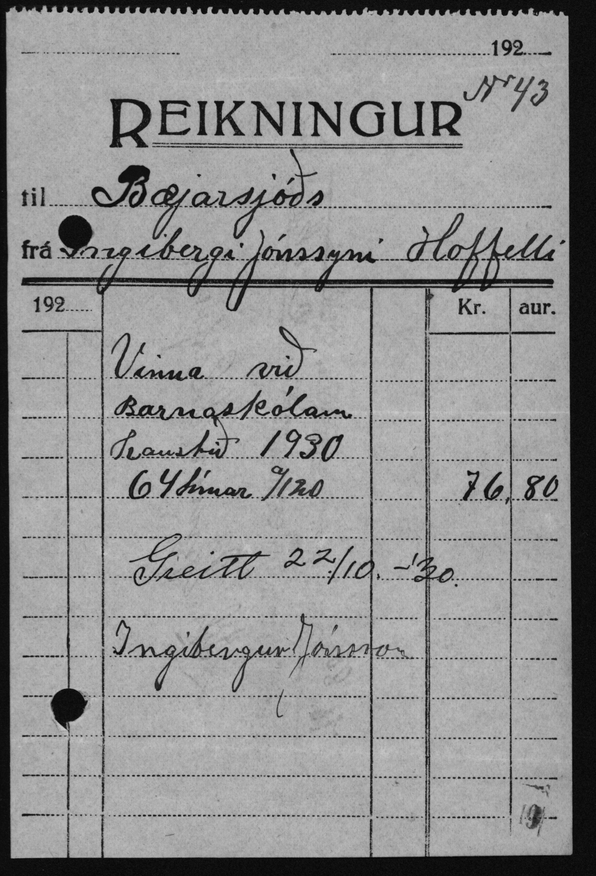 192
Nr 43
REIKNINGUR
til Bæjarsjóðs
frá Ingibergi Jónssyni Hoffelli
192 Kr. aur.
Vinna við
Barnaskólann
Haustið 1930
64 tímar á 1.20 76,80
Greitt 22/10. -'30.
Ingibergur Jónsson